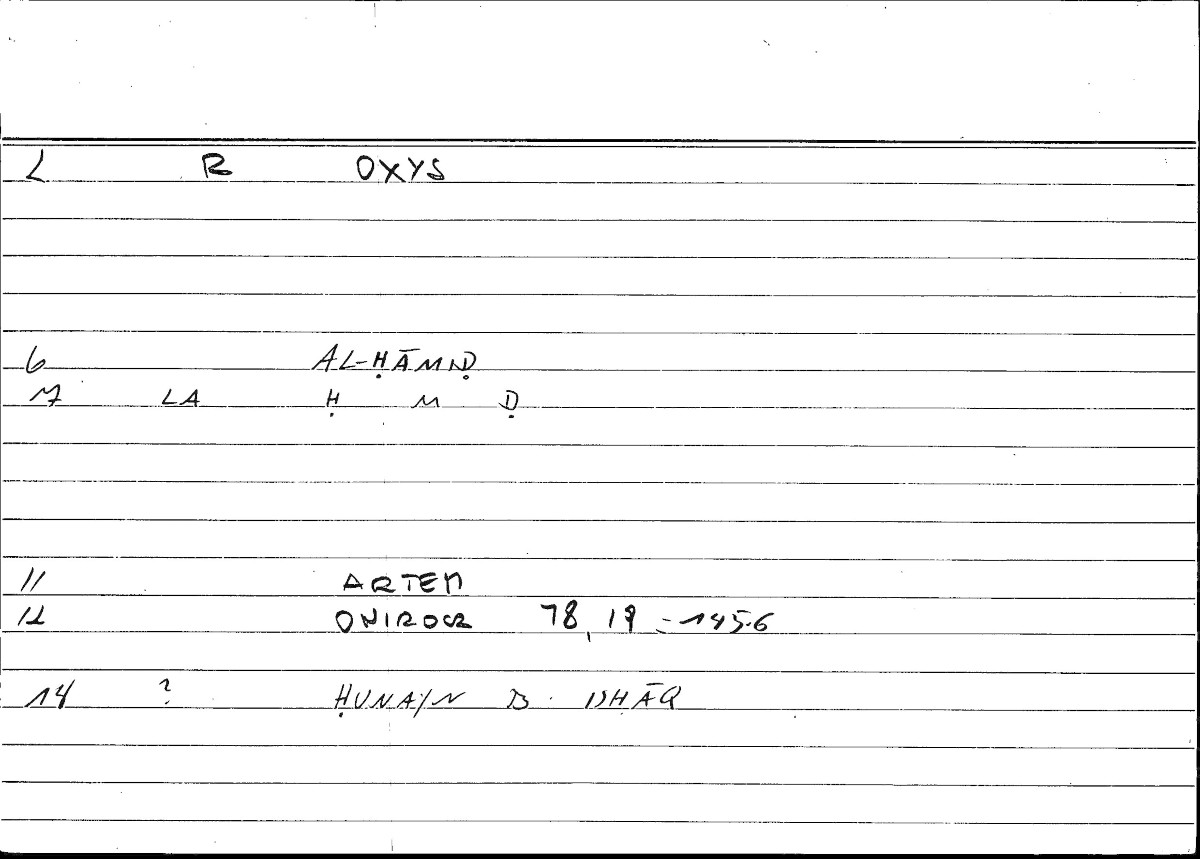 2 R OXYS
6 AL-ḤĀMIḌ
7 LA Ḥ M Ḍ
11 ARTEM
12 ONIROCR 78,19 = 145.6
14 ? ḤUNAYN B. ISHĀQ